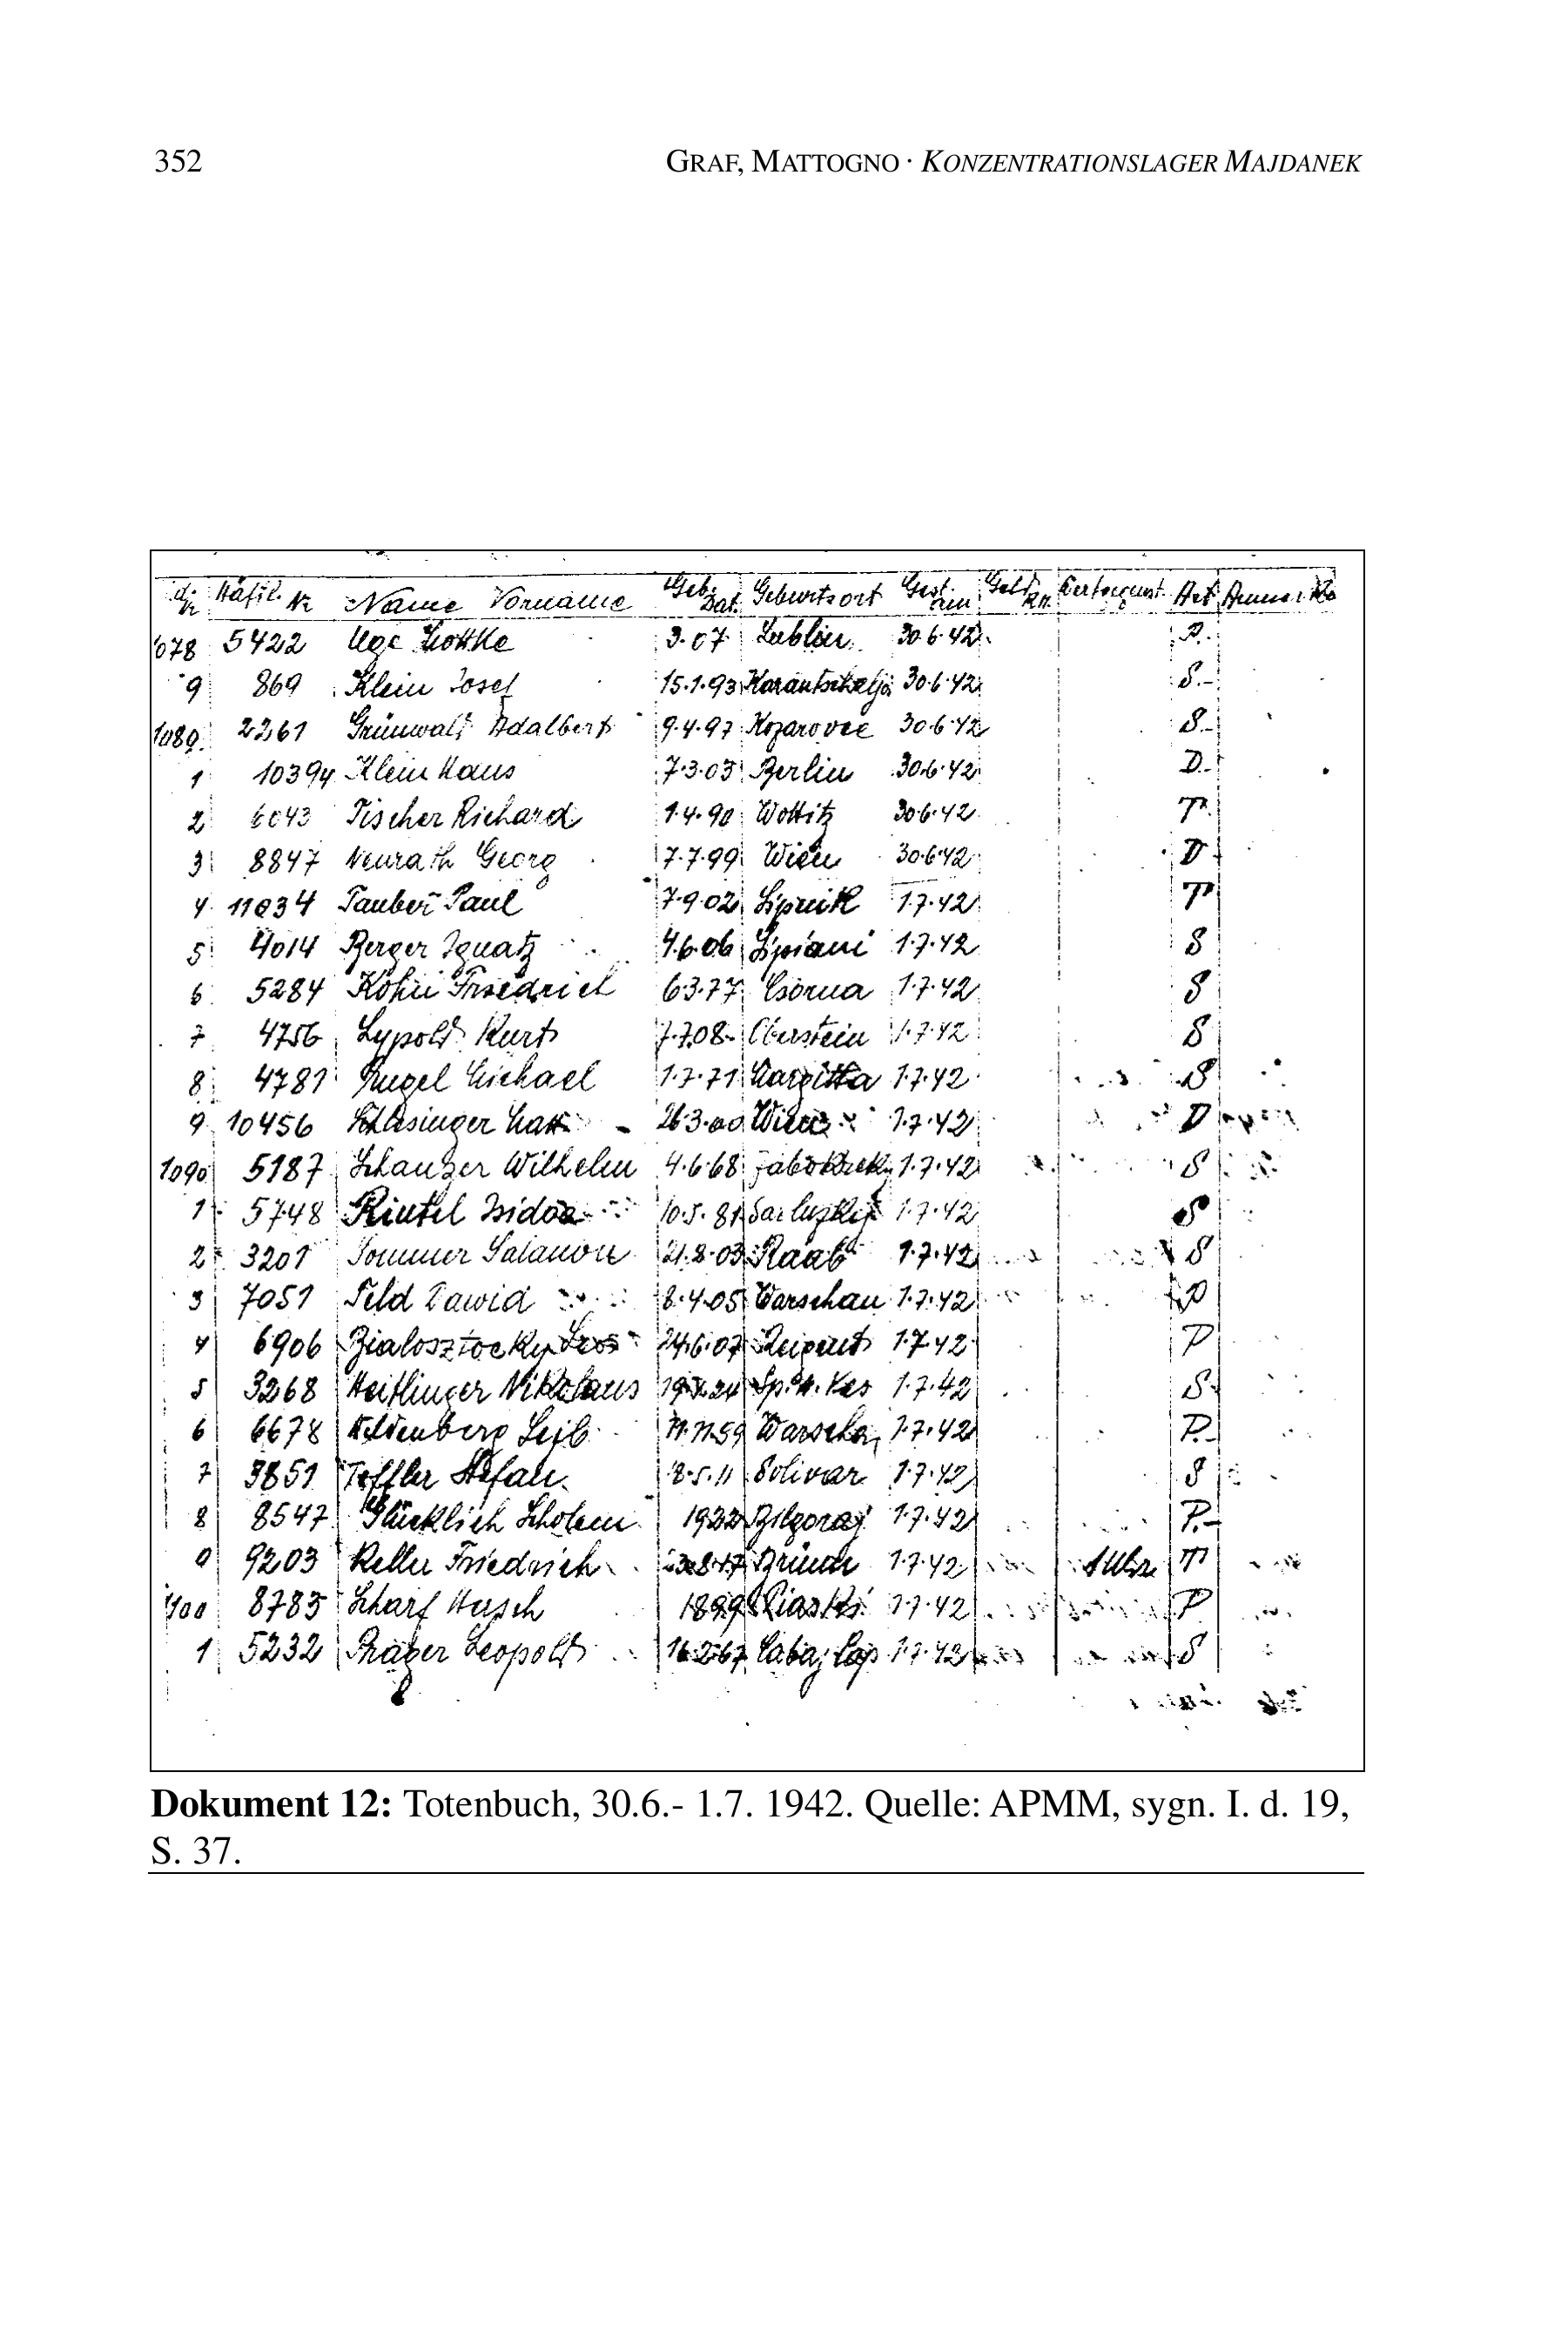 352 GRAF, MATTOGNO · KONZENTRATIONSLAGER MAJDANEK
Häftl. Nr Name Vorname Geb. Dat. Geburtsort Gest. am Geld Art
1078 5422 3.07 Lublin 30.6.42. P.
9 869 Klein Josef 15.1.93 30.6.42 S.-
1080 2261 Grünwald Adalbert 9.4.97 Kozarovce 30.6.42 S.-
1 10394 Klein Hans 7.3.03 Berlin 30.6.42 D.-
2 6043 Fischer Richard 1.4.90 Wottitz 30.6.42 T.
3 8847 Neurath Georg 7.7.99 Wien 30.6.42 D.
4 11034 Tauber Paul 7.9.02 Lipnik 1.7.42 T
5 4014 Berger Ignatz 4.6.06 Lipiani 1.7.42 S
6 5284 Friedrich 6.3.77 Csorna 1.7.42 S
7 4756 Lypold Kurt 7.7.08 Oberstein 1.7.42 S
8 4781 Michael 1.7.71 1.7.42 S
9 10456 Schlesinger 26.3.00 Wien 1.7.42 D
1090 5187 Wilhelm 4.6.68 1.7.42 S
1 5748 Isidor 10.5.81 1.7.42 S
2 3201 Sommer Salamon 21.8.03 Raab 1.7.42 S
3 7051 Feld Dawid 8.4.05 Warschau 1.7.42 P
4 6906 Bialosztocky 24.6.07 1.7.42 P
5 3268 Heitlinger Nikolaus 1.7.42 S
6 6678 Leib 11.11.59 Warschau 1.7.42 P.
7 3851 Toffler Stefan 8.5.11 Solivar 1.7.42 S
8 8547 Glücklich Scholem 1922 Bilgoraj 1.7.42 P.-
9 9203 Keller Friedrich Brünn 1.7.42 T
1100 8783 Scharf Hersch 1899 Piaski 1.7.42 P
1 5232 Prager Leopold 16.2.67 1.7.42 S
Dokument 12: Totenbuch, 30.6.- 1.7. 1942. Quelle: APMM, sygn. I. d. 19,
S. 37.